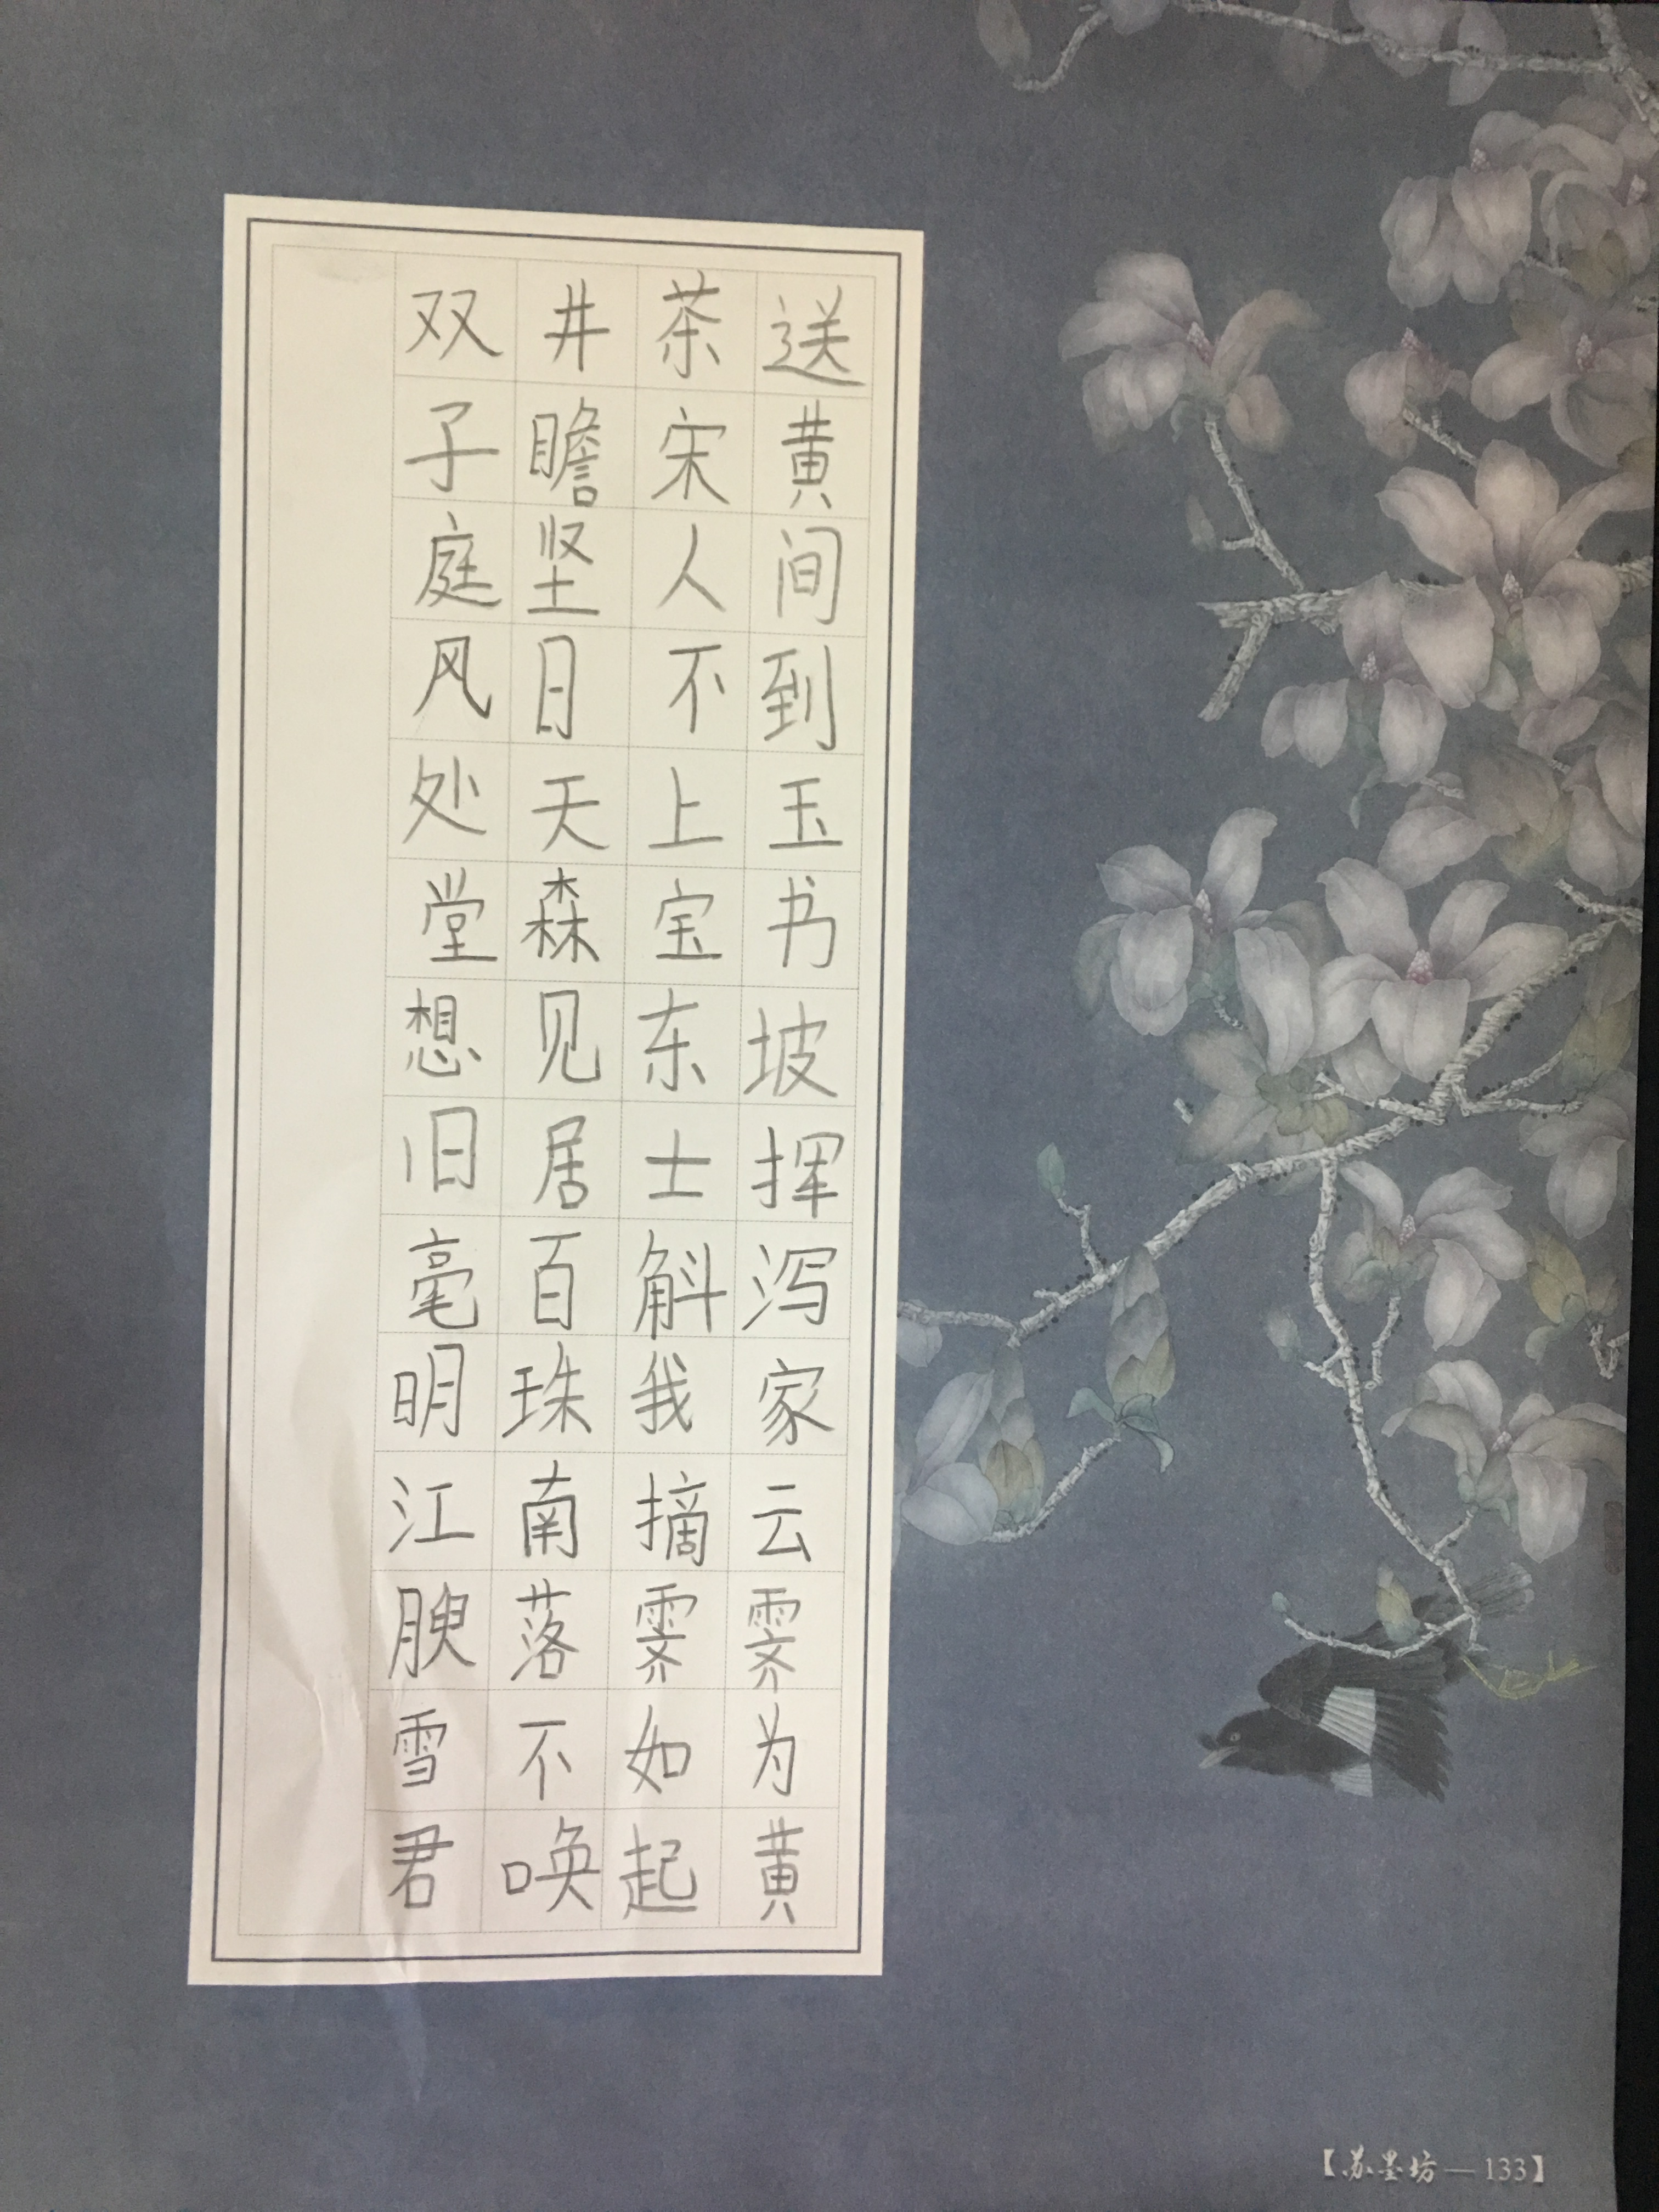 双井茶送
子瞻宋黄
庭坚人间
风日不到
处天上玉
堂森宝书
想见东坡
旧居士挥
毫百斛泻
明珠我家
江南摘云
腴落霁霁
雪不如为
君唤起黄
【苏墨坊—133】